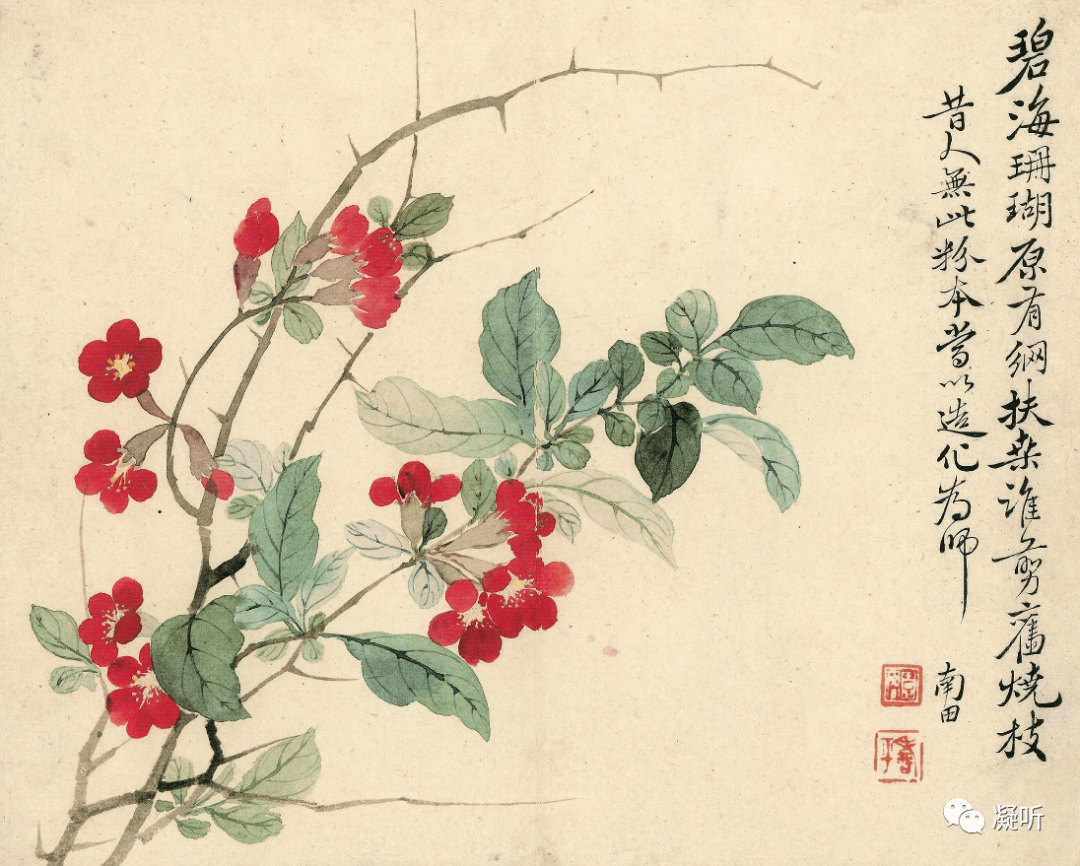 碧海珊瑚原有網扶桒誰剪舊燒枝
昔人無此粉本當以造化為師
南田
凝听